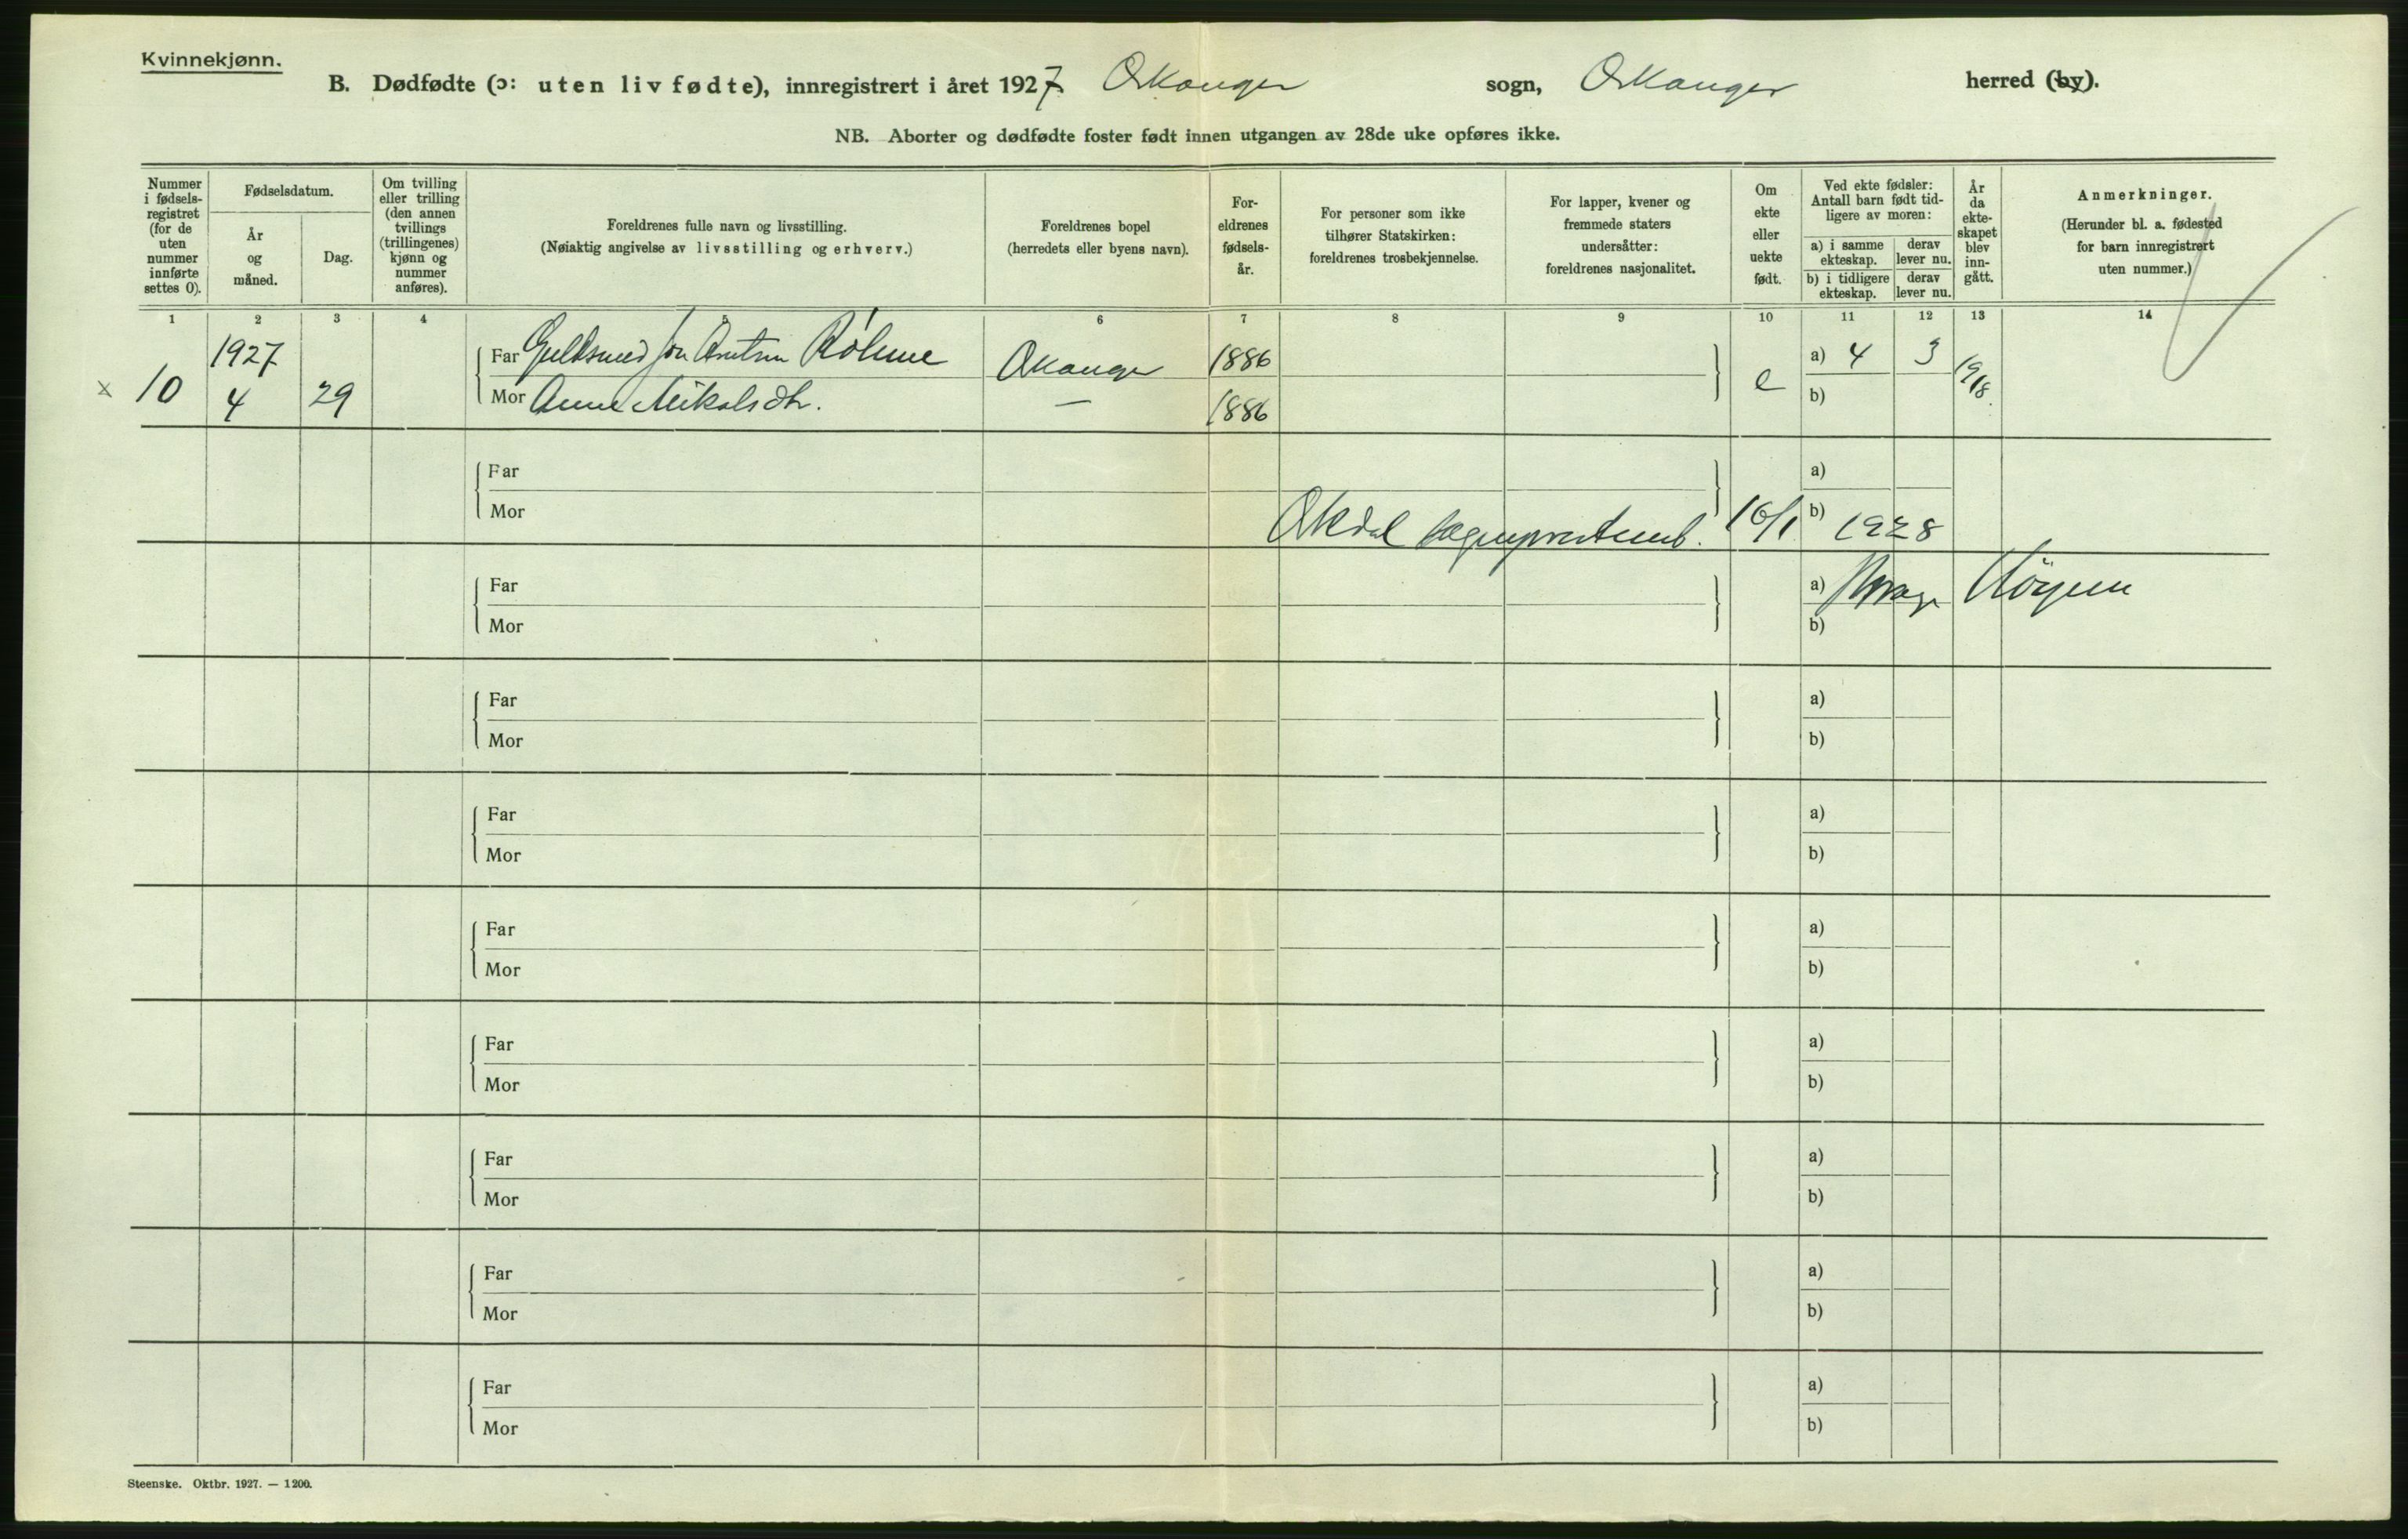 Kvinnekjønn.
B. Dødfødte (ɔ: uten liv fødte), innregistrert i året 1927 Orkanger sogn, Orkanger herred (by).
NB. Aborter og dødfødte foster født innen utgangen av 28de uke opføres ikke.
Nummer i fødsels-registret (for de uten nummer innførte settes 0).
Fødselsdatum.
År og måned.
Dag.
Om tvilling eller trilling (den annen tvillings (trillingenes) kjønn og nummer anføres).
Foreldrenes fulle navn og livsstilling.
(Nøiaktig angivelse av livsstilling og erhverv.)
Foreldrenes bopel
(herredets eller byens navn).
For-eldrenes fødsels-år.
For personer som ikke tilhører Statskirken: foreldrenes trosbekjennelse.
For lapper, kvener og fremmede staters undersåtter: foreldrenes nasjonalitet.
Om ekte eller uekte født.
Ved ekte fødsler: Antall barn født tid-ligere av moren:
a) i samme ekteskap. derav lever nu.
b) i tidligere ekteskap. derav lever nu.
År da ekte-skapet blev inn-gått.
Anmerkninger.
(Herunder bl. a. fødested for barn innregistrert uten nummer.)
1 2 3 4 5 6 7 8 9 10 11 12 13 14
x 10 1927 4 29 Far Gullsmed Jon Anton Røhme Orkanger 1886 e a) 4 3 1918.
Mor Anne Nikolsdtr. — 1886 b)
Far a)
Mor b)
Orkdal sogneprestemb. 16/1 1928
Far a)
Mor b)
Far a)
Mor b)
Far a)
Mor b)
Far a)
Mor b)
Far a)
Mor b)
Far a)
Mor b)
Far a)
Mor b)
Far a)
Mor b)
Steenske. Oktbr. 1927. — 1200.